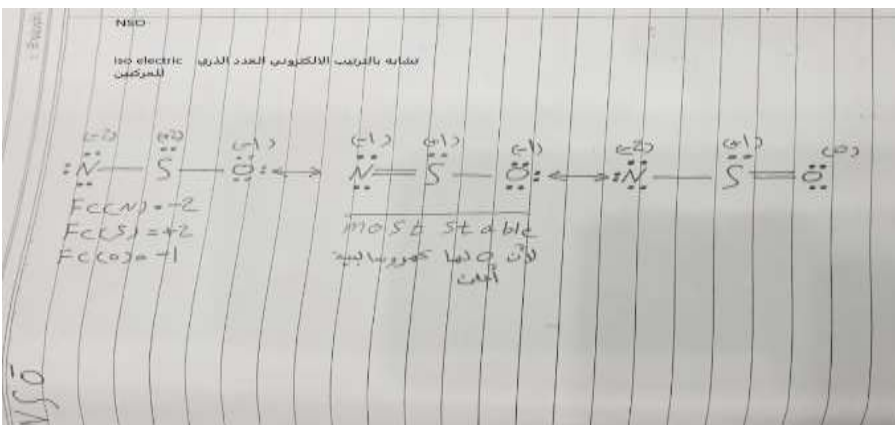 NSO
Iso electric تشابه بالترتيب الالكتروني العدد الذري
للمركبين
(-2) (+2) (-1) (-1) (+1) (-1) (-2) (+1) (0)
:N — S — O: ↔ N = S — O: ↔ :N — S = O
FC(N) = -2
FC(S) = +2
FC(O) = -1
most stable
لأن O لها كهروسالبية
أعلى
NSO